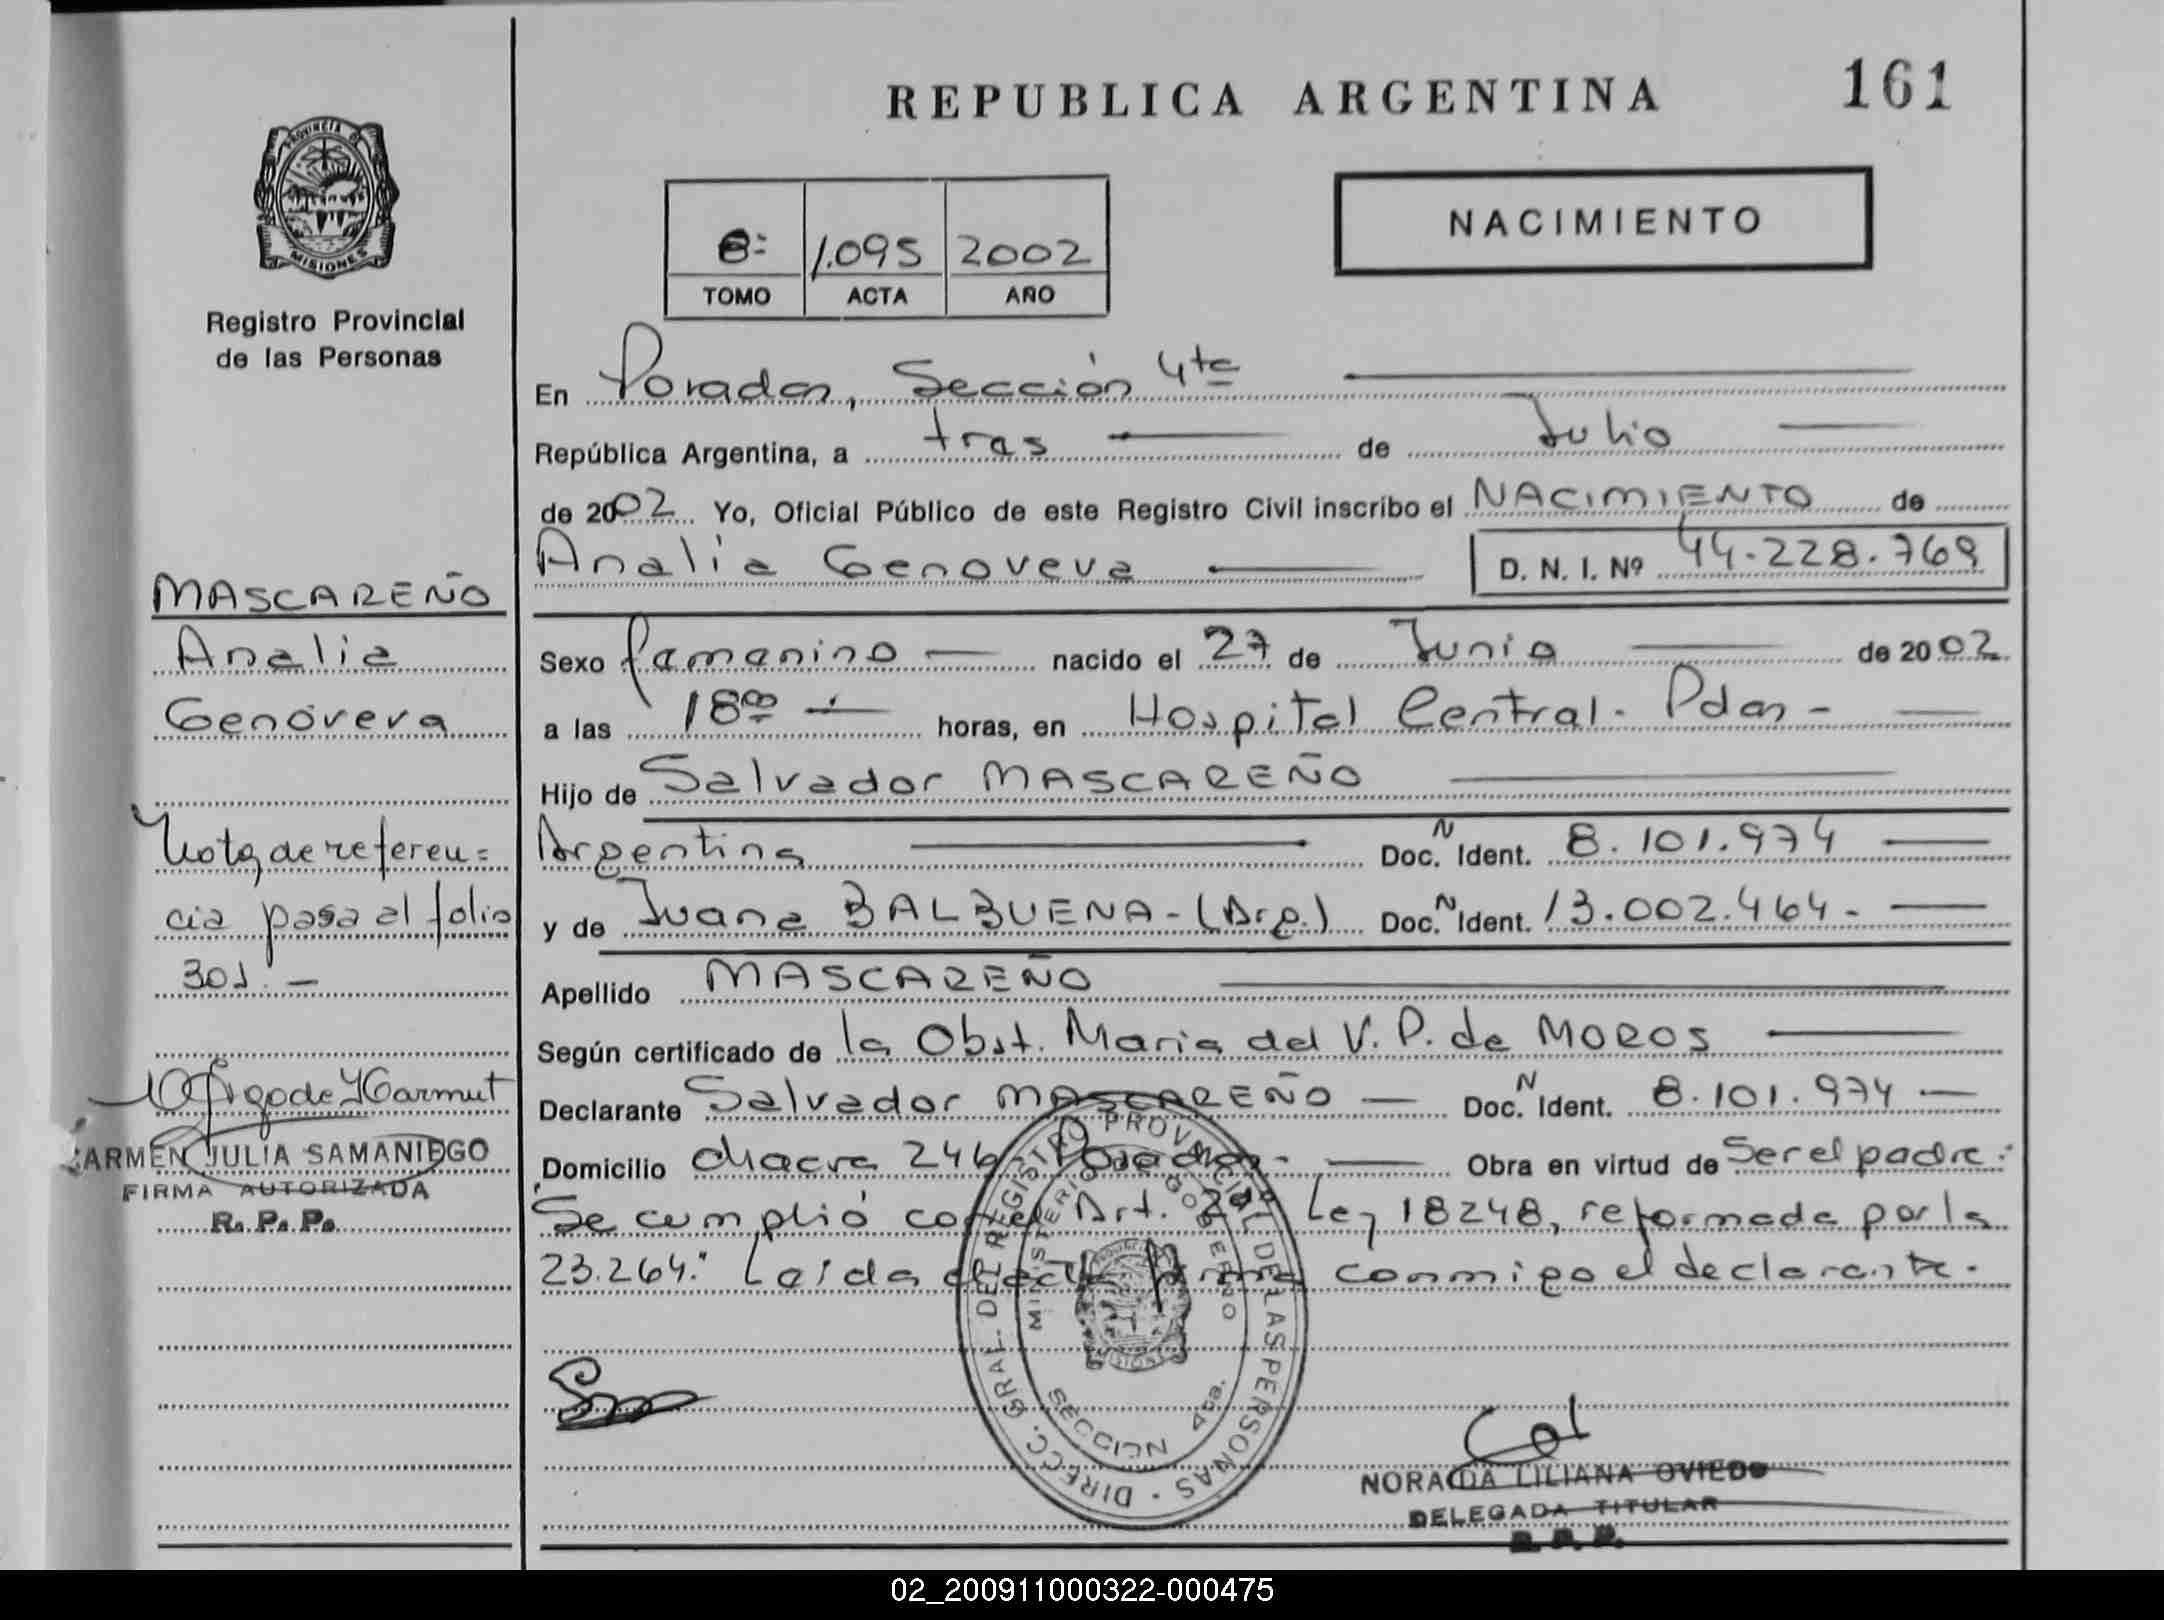 REPUBLICA ARGENTINA
161
PROVINCIA DE
MISIONES
Registro Provincial
de las Personas
8º
1.095
2002
TOMO
ACTA
AÑO
NACIMIENTO
En Posadas, Sección 4ta
República Argentina, a tres de Julio
de 2002 Yo, Oficial Público de este Registro Civil inscribo el NACIMIENTO de
Analia Genoveva
D. N. I. Nº 44.228.769
Sexo femenino nacido el 27 de Junio de 2002
a las 18 00 horas, en Hospital Central - Pdas -
Hijo de Salvador MASCAREÑO
Argentina Doc. N Ident. 8.101.974
y de Juana BALBUENA - (Arg.) Doc. N Ident. 13.002.464 -
Apellido MASCAREÑO
Según certificado de la Obst. Maria del V. P. de MOROS
Declarante Salvador MASCAREÑO Doc. N Ident. 8.101.974
Domicilio chacra 246 Posadas - Obra en virtud de Ser el padre:
Se cumplió con el Art. 2do Ley 18248, reformada por la
23.264." Leída el acta firma conmigo el declarante.
MASCAREÑO
Analia
Genoveva
Nota de referen=
cia pasa al folio
301. -
ARMEN JULIA SAMANIEGO
FIRMA AUTORIZADA
R. P. P.
DIRECC. GRAL. DEL REGISTRO PROVINCIAL DE LAS PERSONAS
MINISTERIO DE GOBIERNO
SECCION 4ta.
NORA IDA LILIANA OVIEDO
DELEGADA TITULAR
R. P. P.
02_200911000322-000475